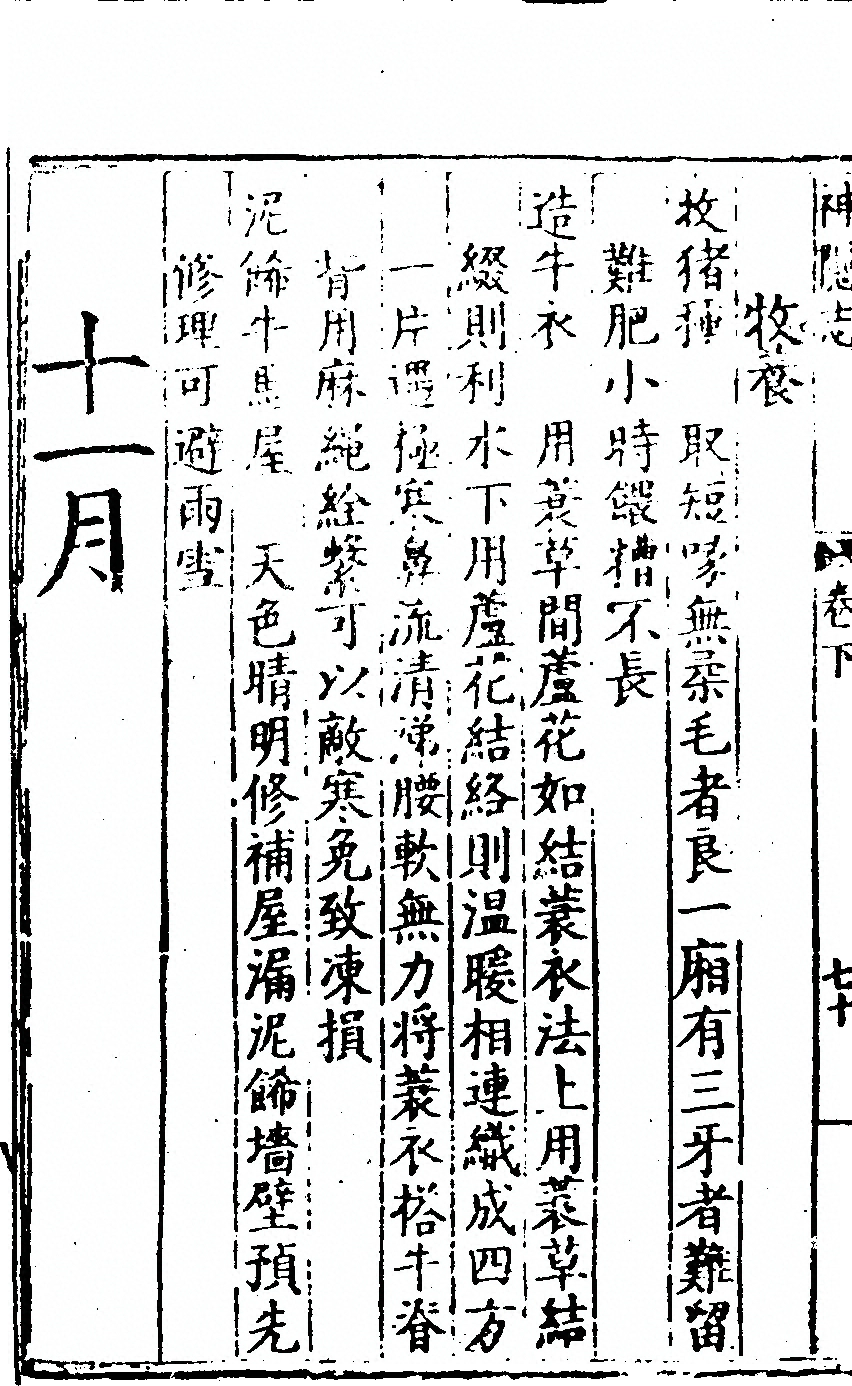 神隱志 卷下 七十
牧養
牧猪種 取短喙無柔毛者良一廂有三牙者難留
難肥小時餵糟不長
造牛衣 用蓑草間蘆花如結蓑衣法上用蓑草結
綴則利水下用蘆花結絡則温暖相連織成四方
一片遇極寒鼻流清涕腰軟無力將蓑衣搭牛脊
背用麻繩絟繫可以敵寒免致凍損
泥餙牛馬屋 天色晴明修補屋漏泥餙墻壁預先
修理可避雨雪
十一月